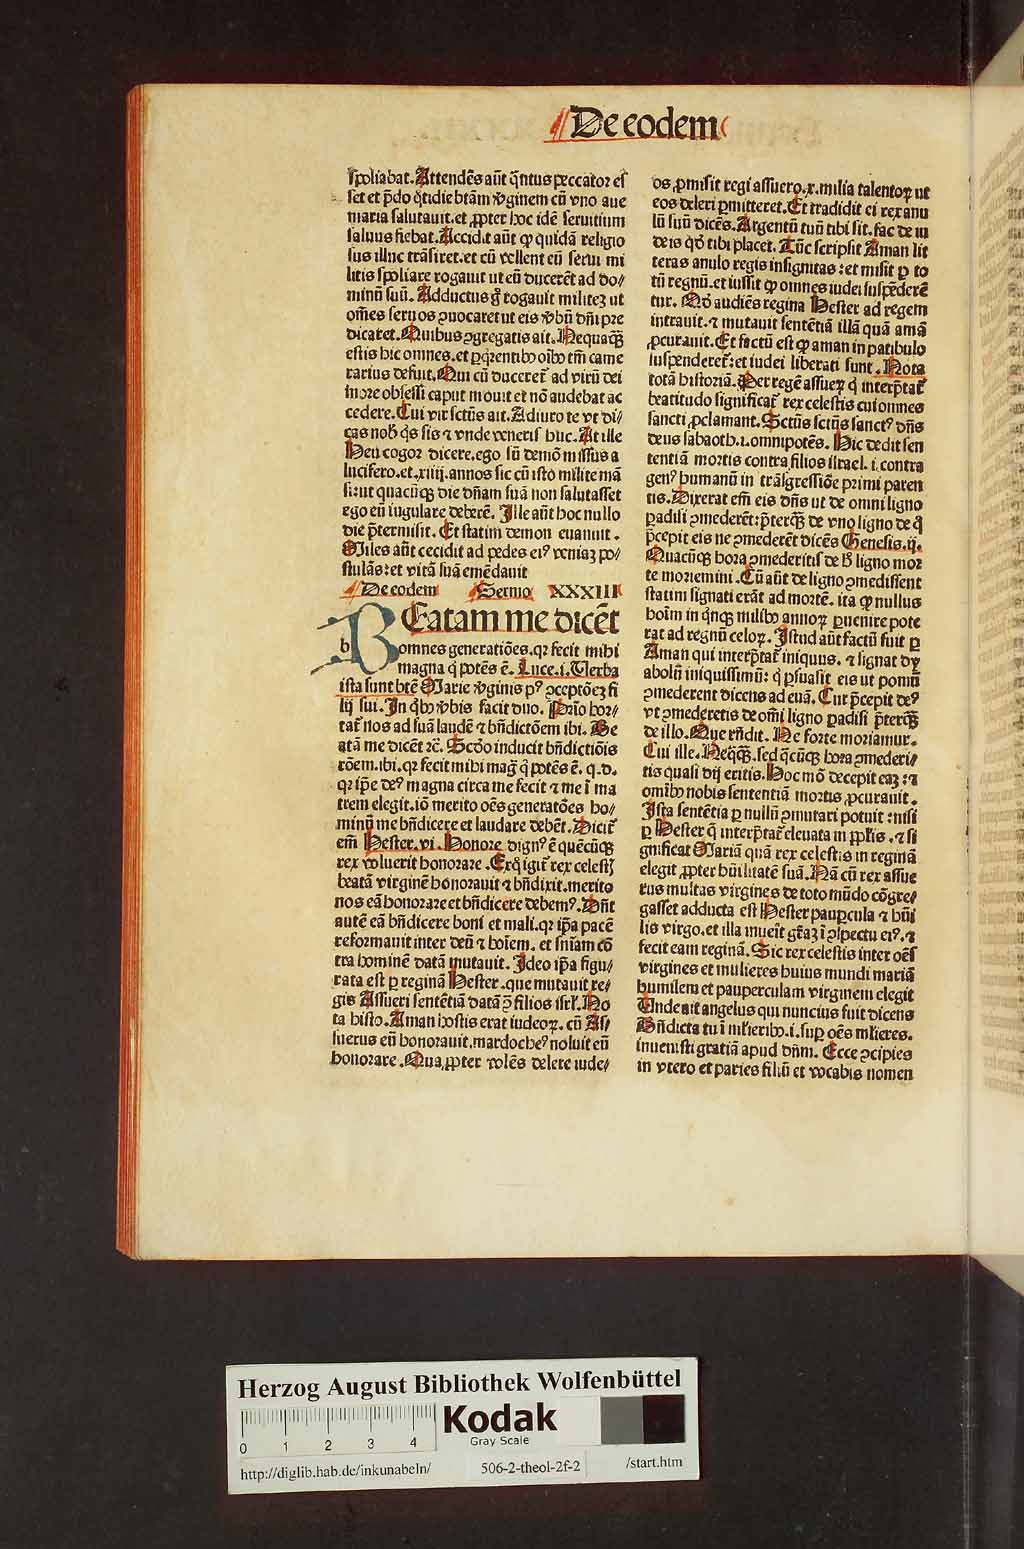 De eodem
spoliabat. Attendẽs aũt q̃ntus peccator eſ
ſet et p̃do q̃tidie btãm v̄ginem cũ vno aue
maria ſalutauit. et ꝓpter hoc idẽ ſeruitium
ſaluus fiebat. Accidit aũt ꝙ quidã religio
ſus illuc trãſiret. et cũ vellent eũ ſerui mi
litis ſpoliare rogauit ut eũ ducerẽt ad do⸗
minũ ſuũ. Adductus g̊ rogauit militeʒ ut
om̃es ſeruos ꝯuocaret ut eis v̄bũ dñi pre
dicaret. Quibus ꝯgregatis ait. Nequaq̃ꝫ
eſtis hic omnes. et ꝑq̃rentibꝰ oĩbꝰ tm̃ came
rarius defuit. Qui cũ duceret̃ ad virũ dei
more obſeſſi caput mouit et nõ audebat ac
cedere. Cui vir ſctũs ait. Adiuro te vt di⸗
cas nob̾ q̃s ſis ⁊ vnde veneris huc. At ille
Heu cogor dicere. ego ſũ demõ miſſus a
lucifero. et .xiiij. annos ſic cũ iſto milite mã
ſi: ut quacũqꝫ die dñam ſuã non ſalutaſſet
ego eũ iugulare deberẽ. Ille aũt hoc nullo
die p̃termiſit. Et ſtatim demon euanuit.
Miles aũt cecidit ad pedes eiꝰ veniaʒ po⸗
ſtulãs: et vitã ſuã emẽdauit
De eodem Sermo XXXIII
BEatam me dicẽt
b omnes generatiões. qꝛ fecit mihi
magna q̇ potẽs ẽ. Luce. i. Verba
iſta ſunt btẽ Marie v̄ginis pꝰ ꝯceptõeʒ fi
lij ſui. In q̇bꝰ v̄bis facit duo. Prĩo hor⸗
tat̃ nos ad ſuã laudẽ ⁊ bñdictõem ibi. Be
atã me dicẽt ⁊c̃. Scḋo inducit bñdictiõis
rõem. ibi. qꝛ fecit mihi mag̃ q̇ potẽs ẽ. q.d.
qꝛ ip̃e deꝰ magna circa me fecit ⁊ me ĩ ma
trem elegit. iõ merito oẽs generatões ho⸗
minũ me bñdicere et laudare debẽt. Dicit̃
em̃ Heſter. vi. Honore dignꝰ ẽ quẽcũqꝫ
rex voluerit honorare. Exq̇ igit̃ rex celeſtꝭ
beatã virginẽ honorauit ⁊ bñdixit. merito
nos eã honorare et bñdicere debemꝰ. Dñt
autẽ eã bñdicere boni et mali. qꝛ ip̃a pacẽ
reformauit inter deũ ⁊ hoĩem. et ſniãm cõ
tra hominẽ datã mutauit. Ideo ip̃a figu⸗
rata eſt ꝑ reginã Heſter. que mutauit re⸗
gis Aſſueri ſentẽtiã datã ꝯ̃ filios iſrl̃. No
ta hiſto. Aman hoſtis erat iudeoꝝ. cũ Aſ⸗
ſuerus eũ honorauit. mardocheꝰ noluit eũ
honorare. Qua,ꝓpter volẽs delere iude⸗
os ꝓmiſit regi aſſuero .x. milia talentoꝝ ut
eos deleri ꝑmitteret. Et tradidit ei rex anu
lũ ſuũ dicẽs. Argentũ tuũ tibi ſit. fac de iu
deis qḋ tibi placet. Tũc ſcripſit Aman lit
teras anulo regis inſignitas: et miſit ꝑ to
tũ regnũ. et iuſſit ꝙ omnes iudei ſuſpẽderẽ
tur. Qḋ audiẽs regina Heſter ad regem
intrauit. ⁊ mutauit ſentẽtiã illã quã amã
ꝓcurauit. Et factũ eſt ꝙ aman in patibulo
ſuſpenderet̃: et iudei liberati ſunt. Nota
totã hiſtoriã. Per regẽ aſſueꝝ q̇ interp̃tat̃
beatitudo ſignificat̃ rex celeſtis cui omnes
ſancti ꝓclamant. Sctũs ſctũs ſanctꝰ dñs
deus ſabaoth. i. omnipotẽs. Hic dedit ſen
tentiã mortis contra filios iſrael. i. contra
genꝰ humanũ in trãſgreſſiõe primi paren
tis. Dixerat em̃ eis dñs ut de omni ligno
padiſi ꝯmederẽt: p̃terq̃ꝫ de vno ligno de q̊
p̃cepit eis ne ꝯmederẽt dicẽs Geneſis. ij.
Quacũqꝫ hora ꝯmederitis de h̾ ligno mor
te moriemini. Cũ aũt de ligno ꝯmediſſent
ſtatim ſignati erãt ad mortẽ. ita ꝙ nullus
hoĩm in q̇nqꝫ milibꝰ annoꝝ ꝑuenire pote
rat ad regnũ celoꝝ. Iſtud aũt factũ fuit ꝑ
Aman qui interp̃tat̃ iniquus. ⁊ ſignat dy
abolũ iniquiſſimũ: q̇ ꝑſuaſit eis ut pomũ
ꝯmederent dicens ad euã. Cur p̃cepit deꝰ
vt ꝯmederetis de om̃i ligno padiſi p̃terq̃ꝫ
de illo. Que rñdit. Ne forte moriamur.
Cui ille. Neq̃q̃ꝫ. ſed q̃cũqꝫ hora ꝯmederi⸗
tis quaſi dij eritis. Hoc mõ decepit eaʒ: ⁊
omĩbꝰ nobis ſententiã mortis ꝓcurauit.
Iſta ſentẽtia ꝑ nullũ ꝯmutari potuit: niſi
ꝑ Heſter q̃ interp̃tat̃ eleuata in ppl̃is. ⁊ ſi
gnificat Mariã quã rex celeſtis in reginã
elegit ꝓpter hũilitatẽ ſuã. Nã cũ rex aſſue
rus multas virgines de toto mũdo cõgre⸗
gaſſet adducta eſt Heſter paupercula ⁊ hũi
lis virgo. et illa inueĩt gr̃aʒ ĩ ꝯſpectu eiꝰ. ⁊
fecit eam reginã. Sic rex celeſtis inter oẽs
virgines et mulieres huius mundi mariã
humilem et pauperculam virginem elegit
Unde ait angelus qui nuncius fuit dicens
Bñdicta tu ĩ mlieribꝰ. i. ſuꝑ oẽs mlieres.
inueniſti gratiã apud dñm. Ecce ꝯcipies
in vtero et paries filiũ et vocabis nomen
Herzog August Bibliothek Wolfenbüttel
0 1 2 3 4
Kodak
Gray Scale
http://diglib.hab.de/inkunabeln/ 506-2-theol-2f-2 /start.htm